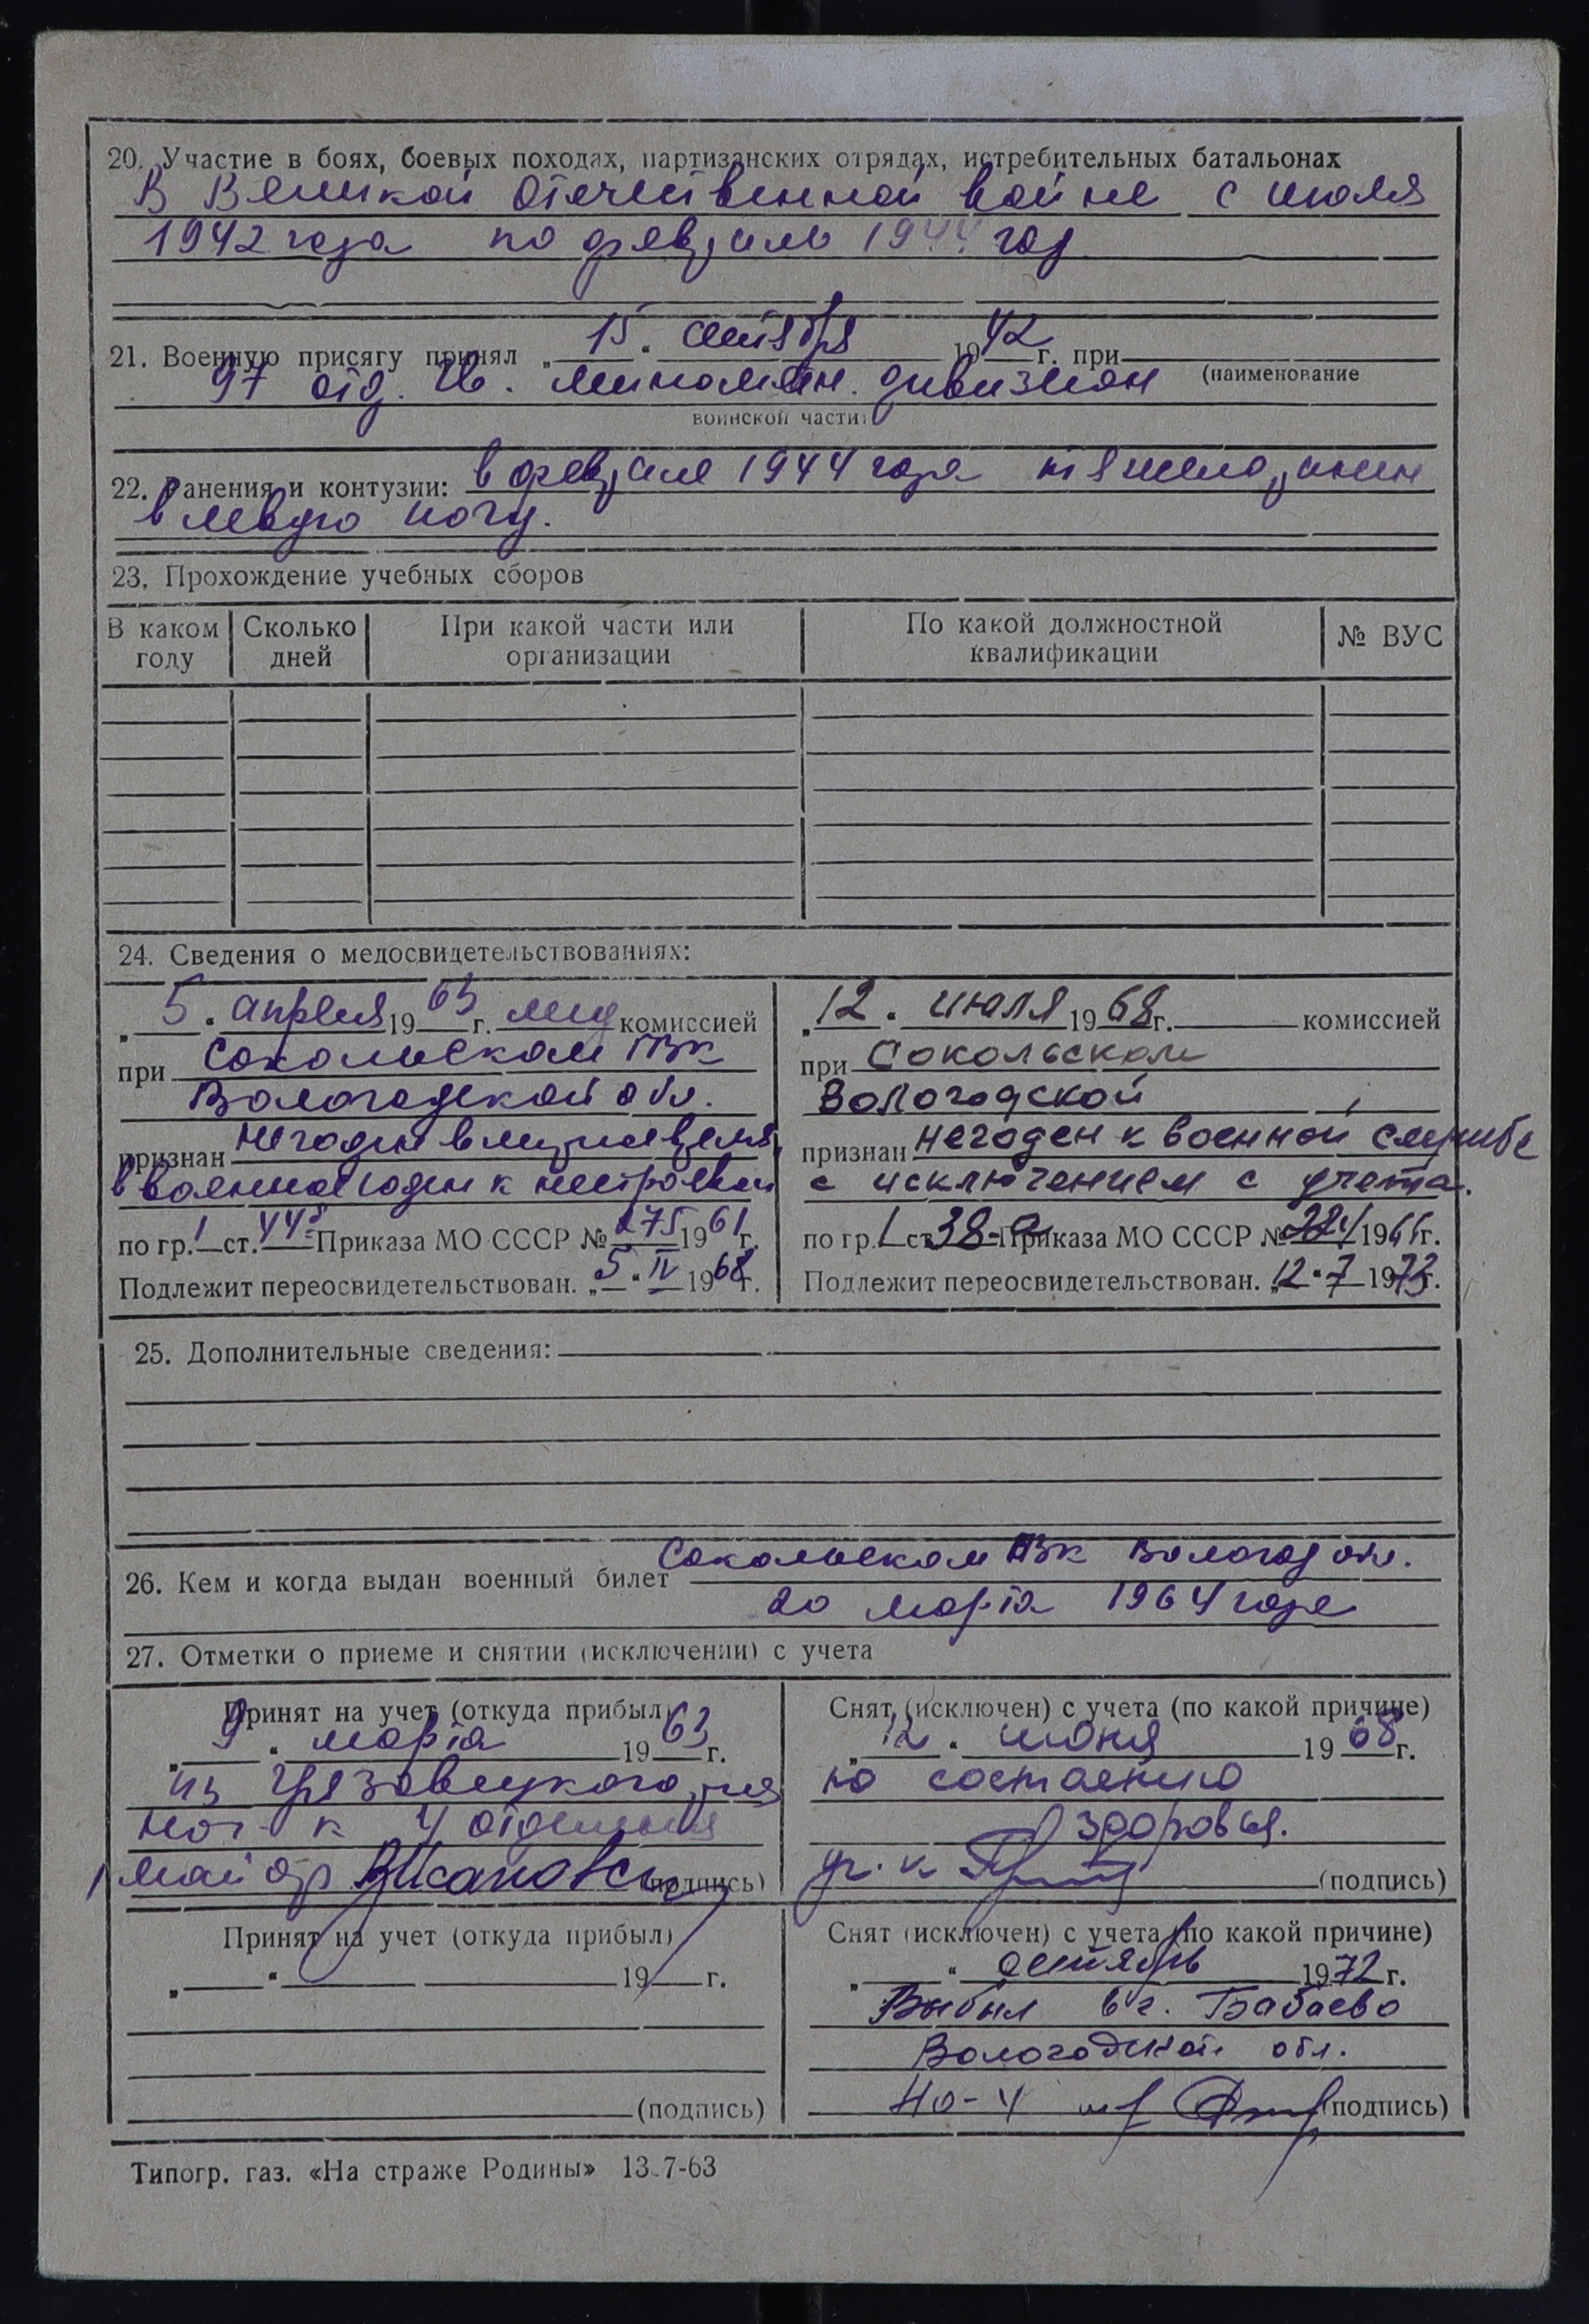 20. Участие в боях, боевых походах, партизанских отрядах, истребительных батальонах
В Великой Отечественной войне с июля
1942 года по февраль 1944 год
21. Военную присягу принял „15“ сентября 1942 г. при
97 отд. Гв. миномётн. дивизион (наименование
воинской части)
22. Ранения и контузии: в феврале 1944 года тяжело ранен
в левую ногу.
23. Прохождение учебных сборов
В каком году
Сколько дней
При какой части или организации
По какой должностной квалификации
№ ВУС
24. Сведения о медосвидетельствованиях:
„5“ апреля 1963 г. мед комиссией
при Сокольском ГВК
Вологодской обл.
признан негоден в мирное время,
в военное годен к нестроевой
по гр. 1 ст. 44 Приказа МО СССР № 275 1961 г.
Подлежит переосвидетельствован. „5“ IV 1968 г.
„12“ июля 1968 г. комиссией
при Сокольском
Вологодской
признан негоден к военной службе
с исключением с учета.
по гр. 1 ст. 38-а Приказа МО СССР № 1966 г.
Подлежит переосвидетельствован. „12“ 7 1973 г.
25. Дополнительные сведения:
26. Кем и когда выдан военный билет Сокольском ГВК Вологод обл.
20 марта 1964 года
27. Отметки о приеме и снятии (исключении) с учета
Принят на учет (откуда прибыл)
„9“ марта 1963 г.
из Грязовецкого р-на
нач-к 4 отделения
майор (подпись)
Снят (исключен) с учета (по какой причине)
„12“ июня 1968 г.
по состоянию
здоровья.
(подпись)
Принят на учет (откуда прибыл)
„ “ 19 г.
(подпись)
Снят (исключен) с учета (по какой причине)
„ “ сентябрь 1972 г.
Выбыл в г. Бабаево
Вологодской обл.
НО-4 (подпись)
Типогр. газ. «На страже Родины» 13.7-63